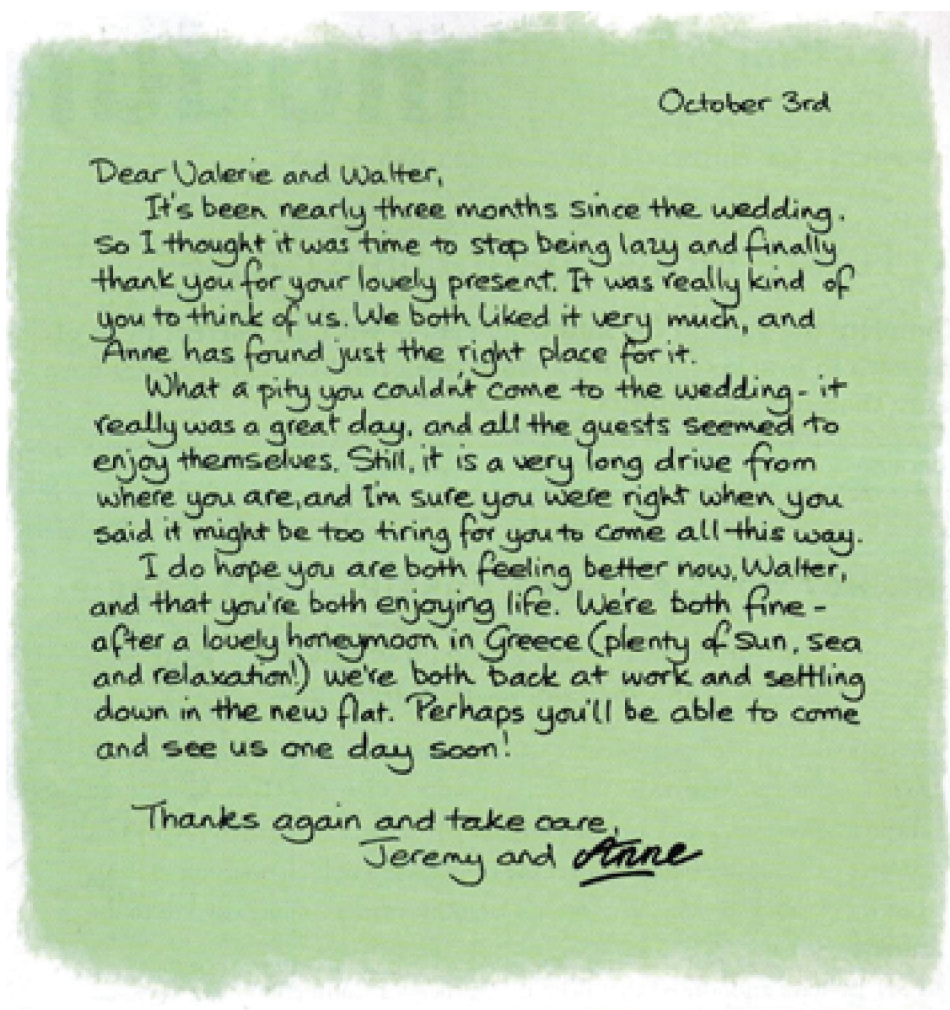 October 3rd
Dear Valerie and Walter,
It's been nearly three months since the wedding.
So I thought it was time to stop being lazy and finally
thank you for your lovely present. It was really kind of
you to think of us. We both liked it very much, and
Anne has found just the right place for it.
What a pity you couldn't come to the wedding - it
really was a great day, and all the guests seemed to
enjoy themselves. Still, it is a very long drive from
where you are, and I'm sure you were right when you
said it might be too tiring for you to come all this way.
I do hope you are both feeling better now, Walter,
and that you're both enjoying life. We're both fine -
after a lovely honeymoon in Greece (plenty of sun, sea
and relaxation!) we're both back at work and settling
down in the new flat. Perhaps you'll be able to come
and see us one day soon!
Thanks again and take care,
Jeremy and Anne